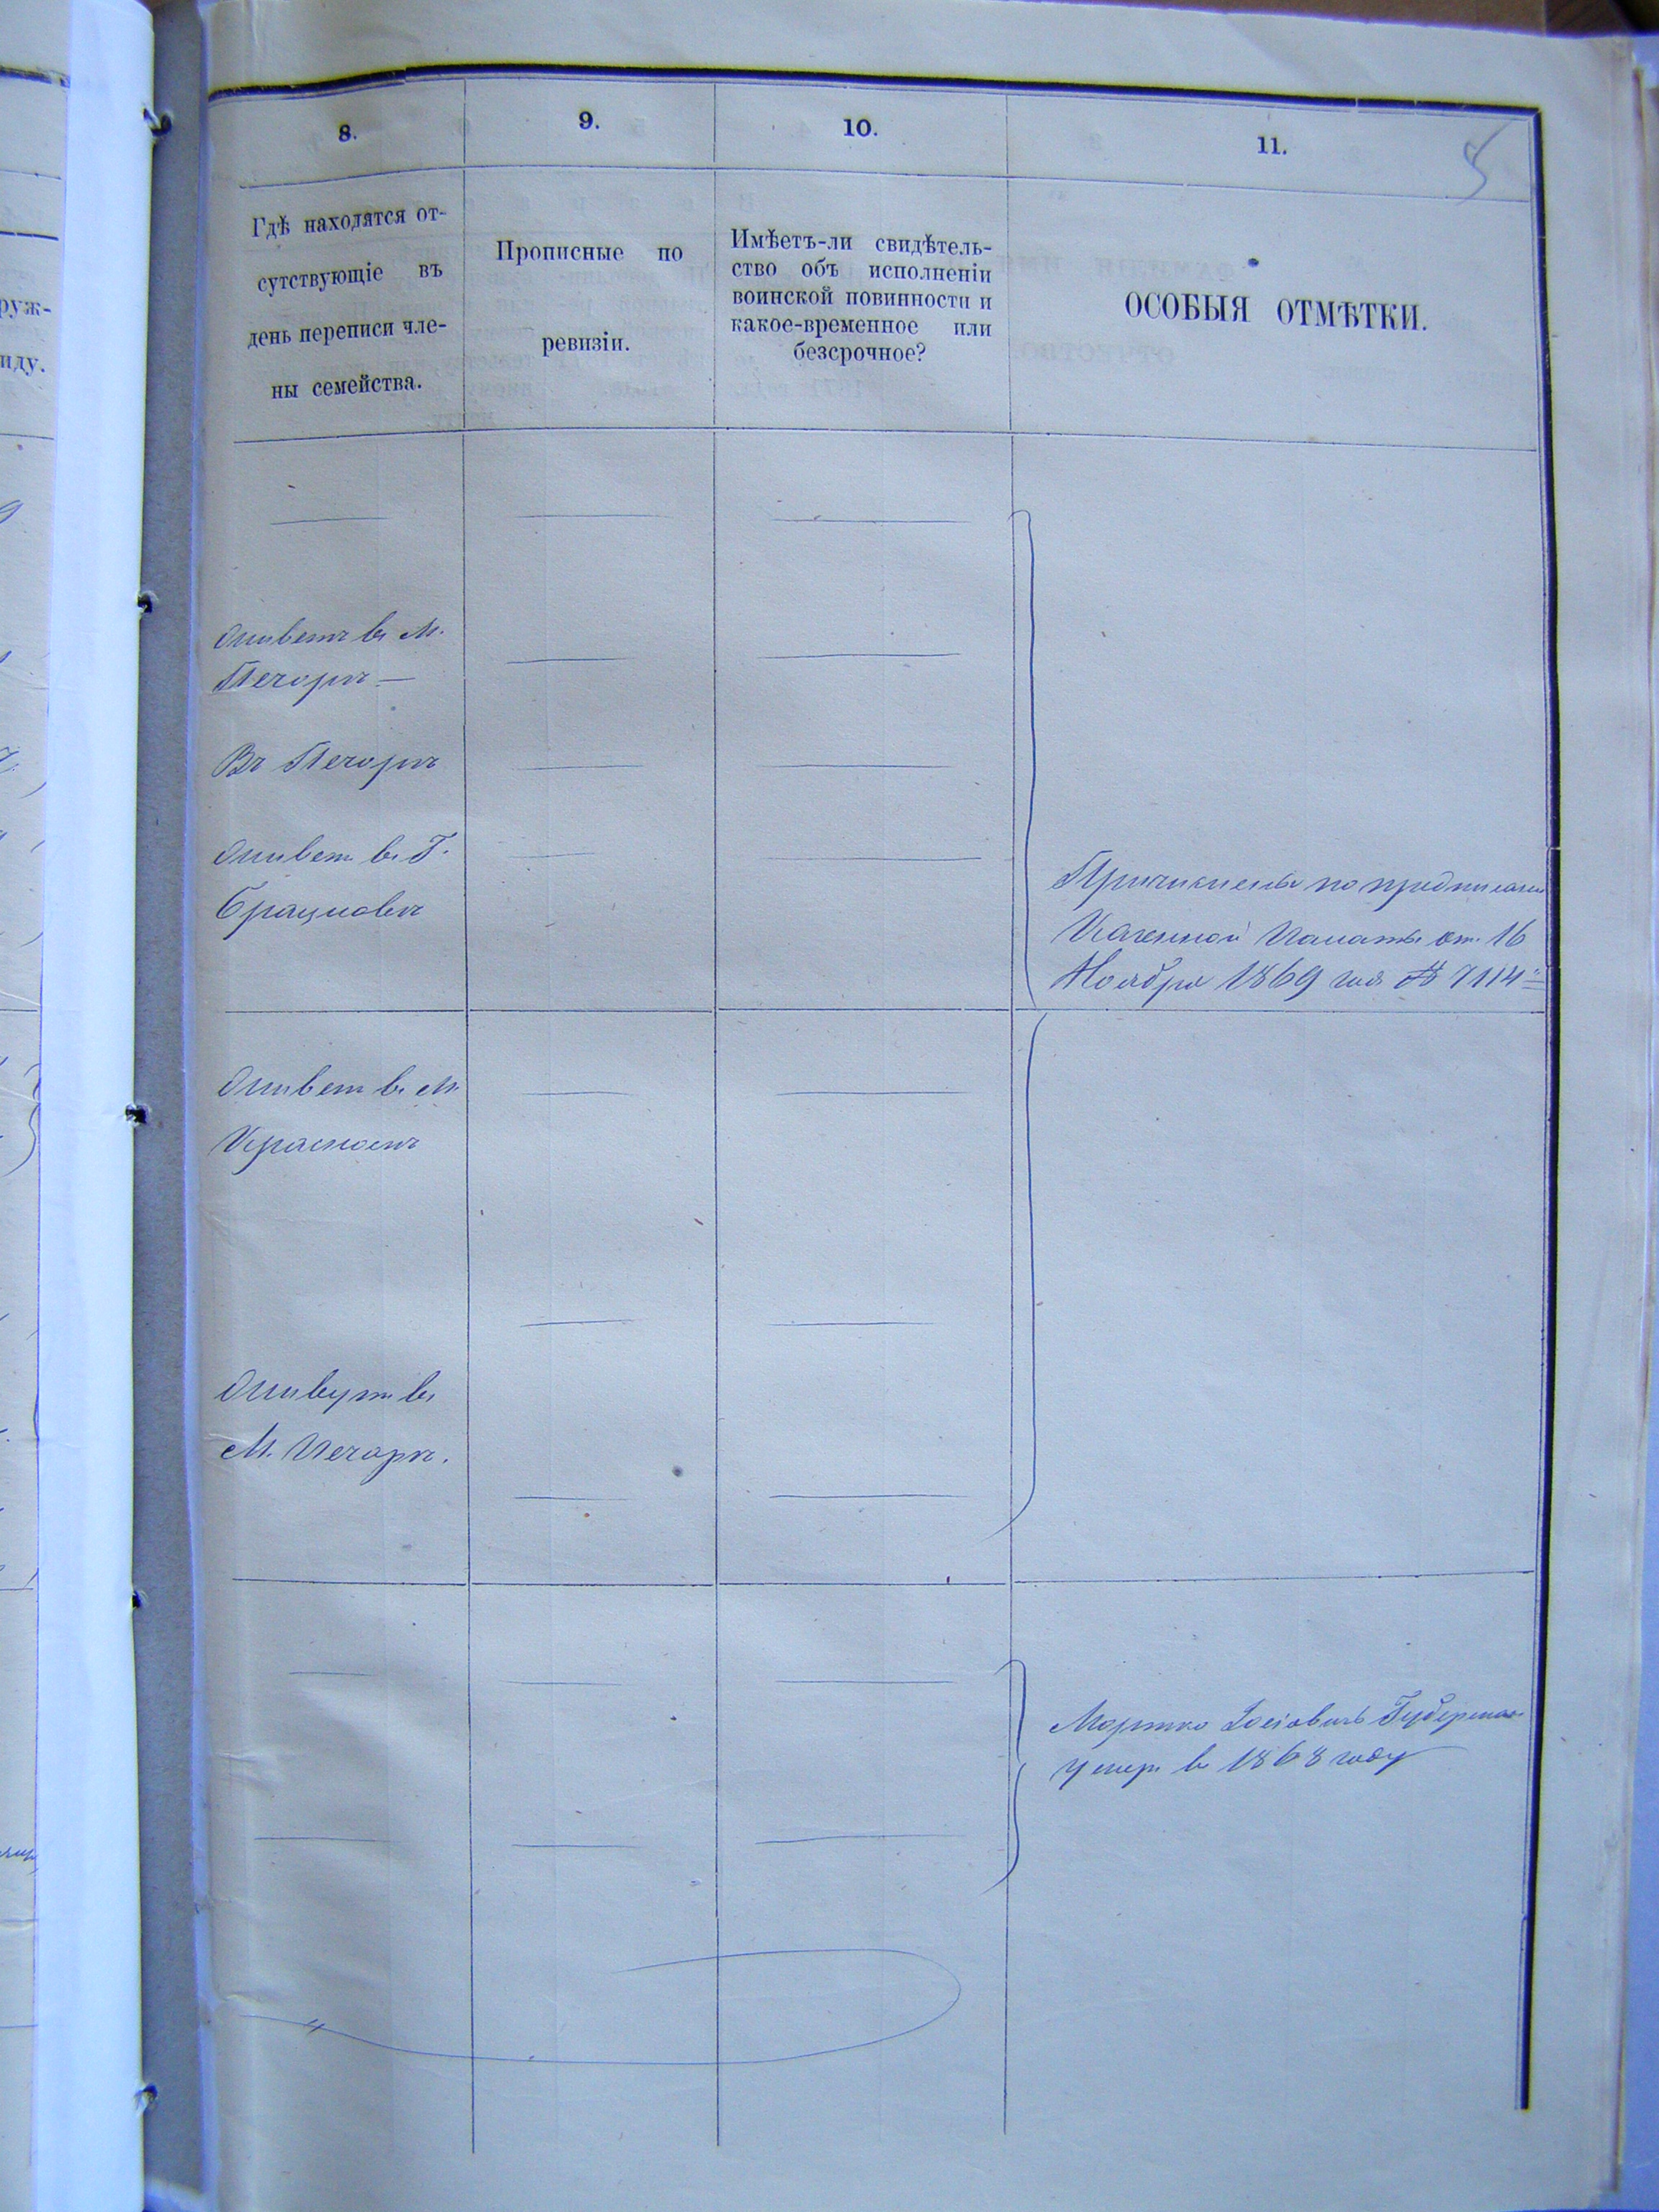 8.
9.
10.
11.
5
Гдѣ находятся от-
сутствующіе въ
день переписи чле-
ны семейства.
Прописные по
ревизіи.
Имѣетъ-ли свидѣтель-
ство объ исполненіи
воинской повинности и
какое-временное или
безсрочное?
ОСОБЫЯ ОТМѢТКИ.
руж-
иду.
Живетъ въ М.
Печорѣ —
Въ Печорѣ
Живетъ въ Г.
Брацлавѣ
Причислены по предписанію
Казенной Палаты от. 16
Ноября 1869 года № 7114
Живетъ въ М.
Красномъ
Живутъ въ
М. Печорѣ.
Мортко Іосіовичъ
умеръ въ 1868 году